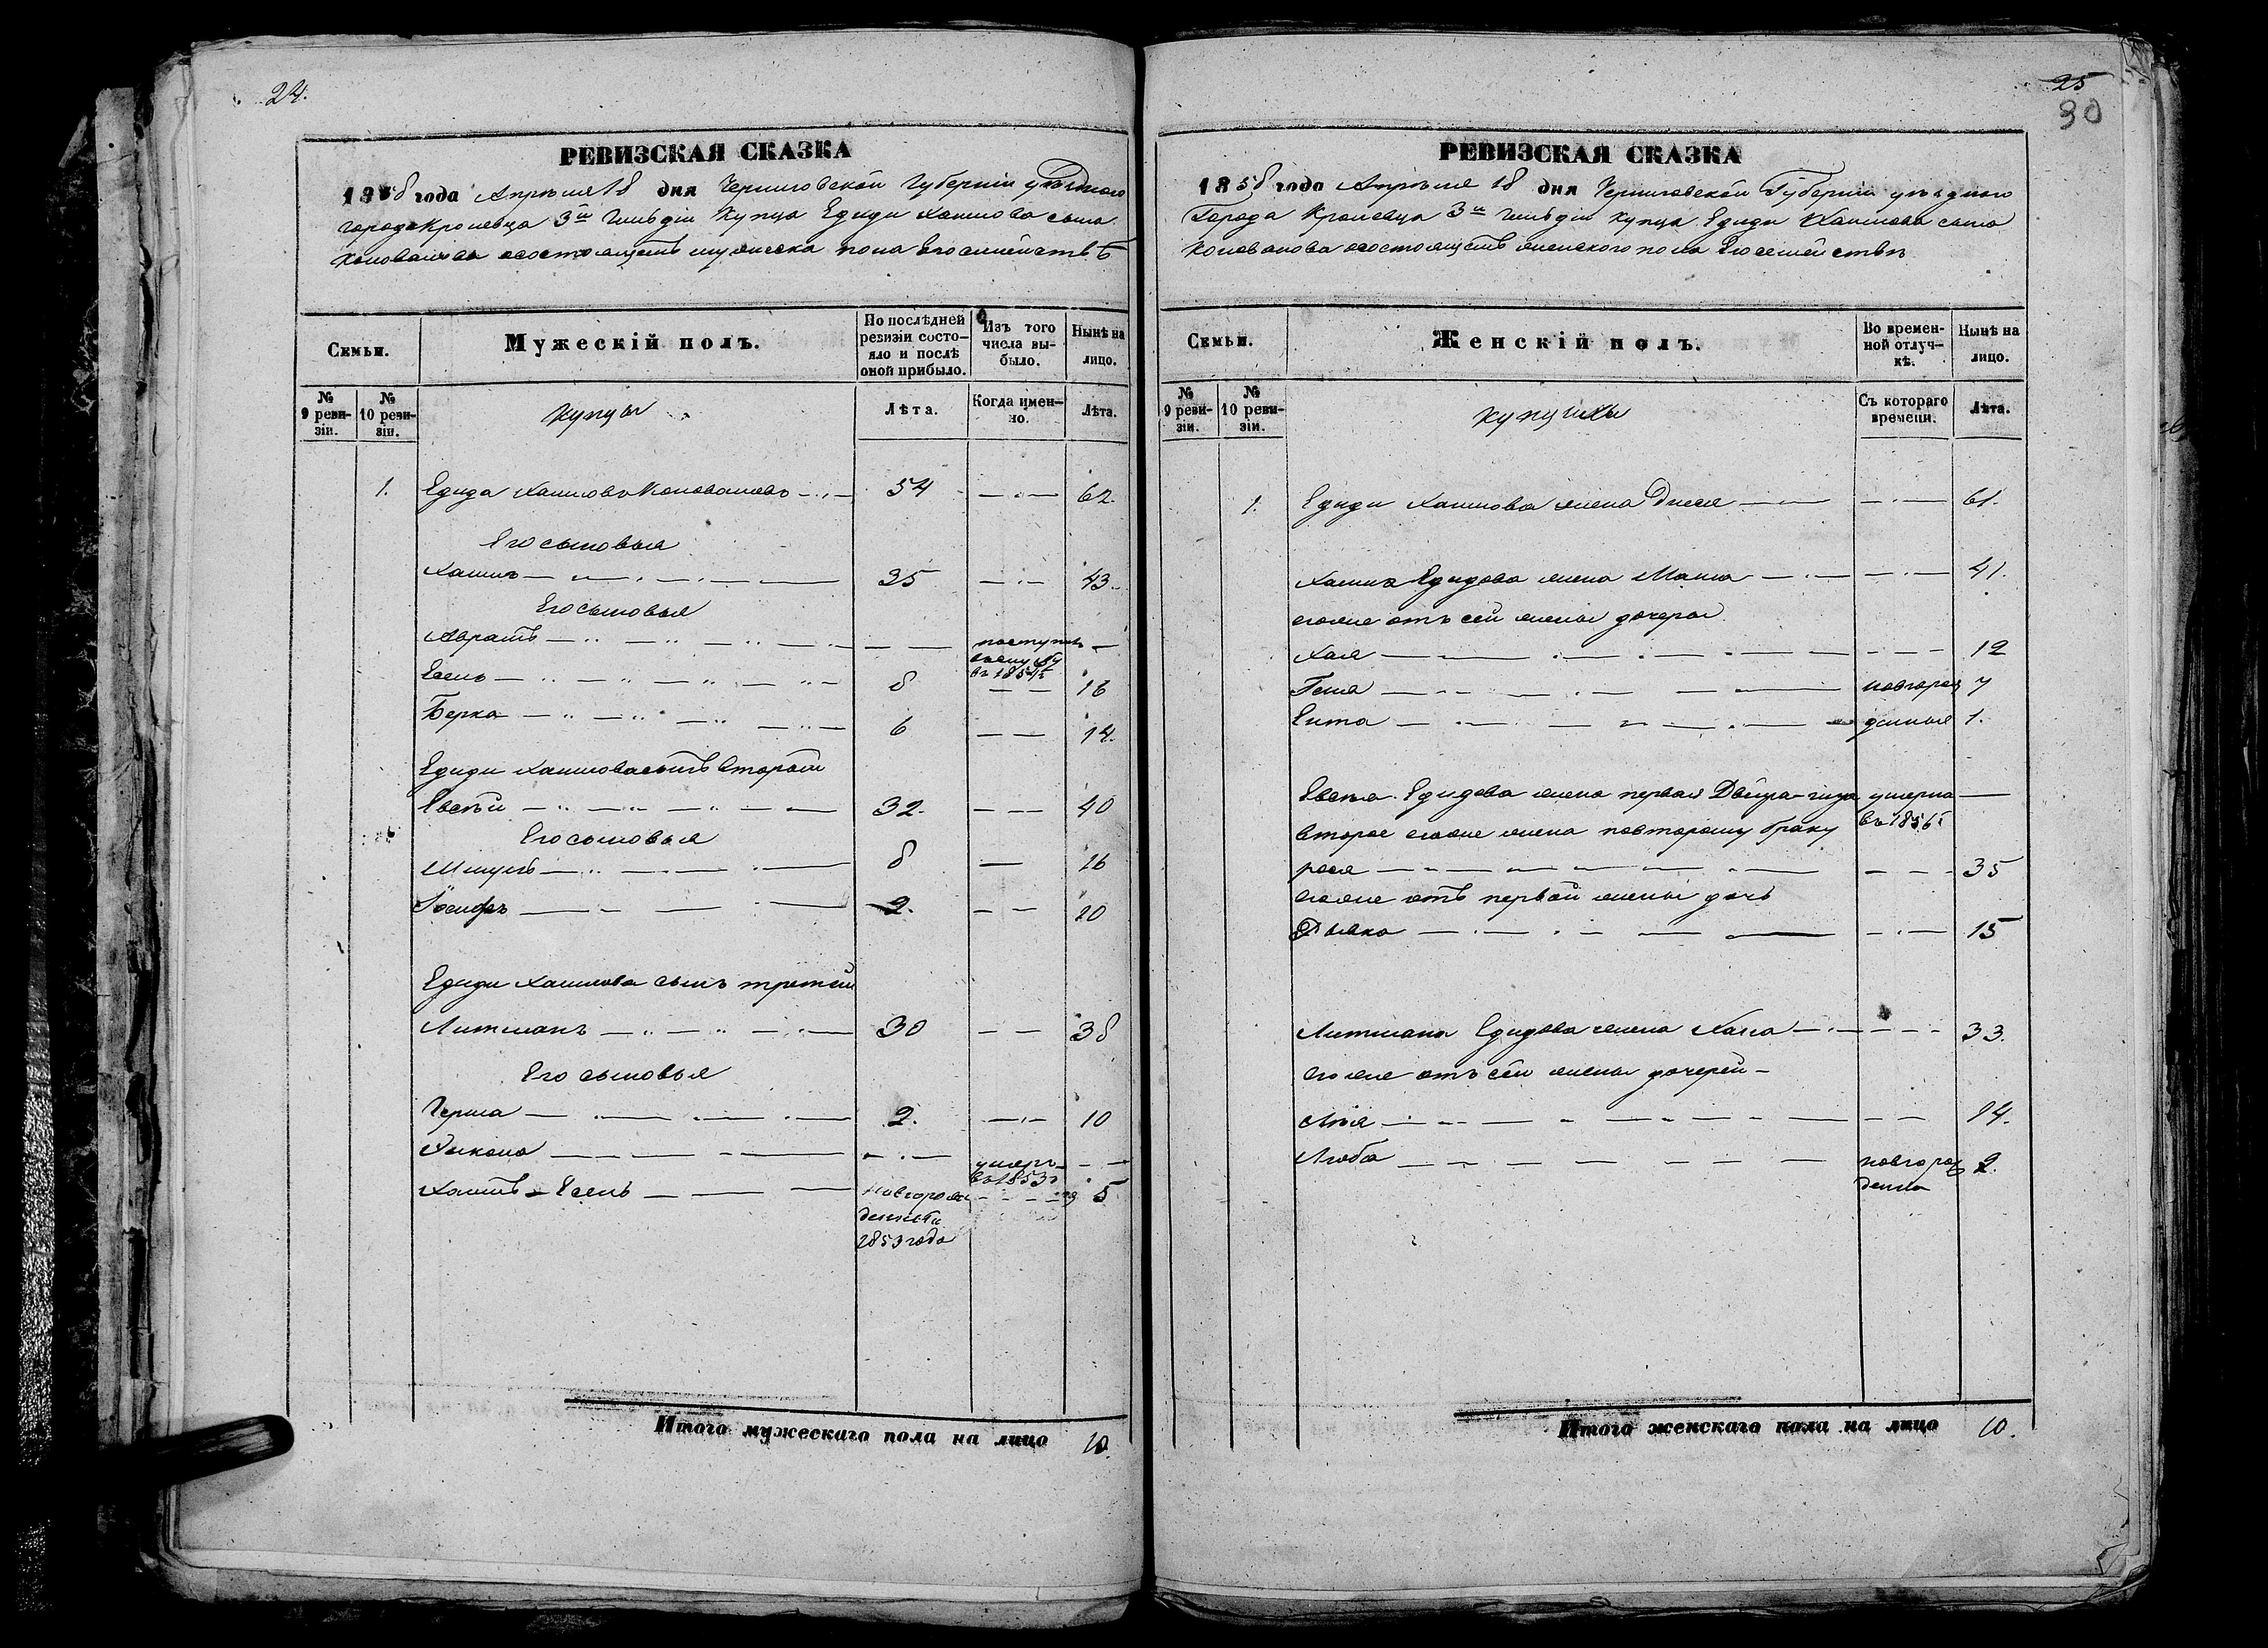 24.
РЕВИЗСКАЯ СКАЗКА
1858 года Апреля 18 дня Черниговской Губернии уѣзднаго
города Кролевца 3й Гильдіи Купца Едиди Хаимова сына
Коновалова о состоящемъ мужеска пола Его семействѣ
Семьи.
Мужескій полъ.
По послѣдней ревизіи состо-
яло и послѣ
оной прибыло.
Изъ того
числа вы-
было.
Нынѣ на
лицо.
№
9 реви-
зіи.
№
10 реви-
зіи.
Купцы
Лѣта.
Когда имен-
но.
Лѣта.
1. Едида Хаимовъ Коноваловъ 54 62.
Его сыновья
Хаимъ 35 43.
Его сыновья
Абрамъ поступилъ
въ 1854г
Есель 8 16
Берка 6 14.
Едиди Хаимова сынъ вторый
Евсѣй 32. 40
Его сыновья
8 16
Іосифъ 2. 10
Едиди Хаимова сынъ третій
Литманъ 30 38
Его сыновья
Герша 2. 10
умеръ
въ 1853г
Хаимъ-Есель новорож
денный
1853 года 5
Итого мужескаго пола на лицо 10.
25
30
РЕВИЗСКАЯ СКАЗКА
1858 года Апреля 18 дня Черниговской Губерніи уѣзднаго
Города Кролевца 3й Гильдіи Купца Едиди Хаимова сына
Коновалова о состоящемъ женскаго пола Его семействѣ
Семьи.
Женскій полъ.
Во времен-
ной отлуч-
кѣ.
Нынѣ на
лицо.
№
9 реви-
зіи.
№
10 реви-
зіи.
Купчихи
Съ котораго
времени.
Лѣта.
1. Едиди Хаимова жена 61.
Хаима Едидова жена 41.
его же отъ сей жены дочери
Хая 12
Геня новорож 7
Гита денныя 1.
Евсѣя Едидова жена первая Двейра умерла
вторая его же жена по второму браку въ 1856г
рося 35
его же отъ первой жены дочь
15
Литмана Едидова жена Хана 33.
его же отъ сей жены дочери
Лѣя 14.
Люба новорож 2.
денна
Итого женскаго пола на лицо 10.